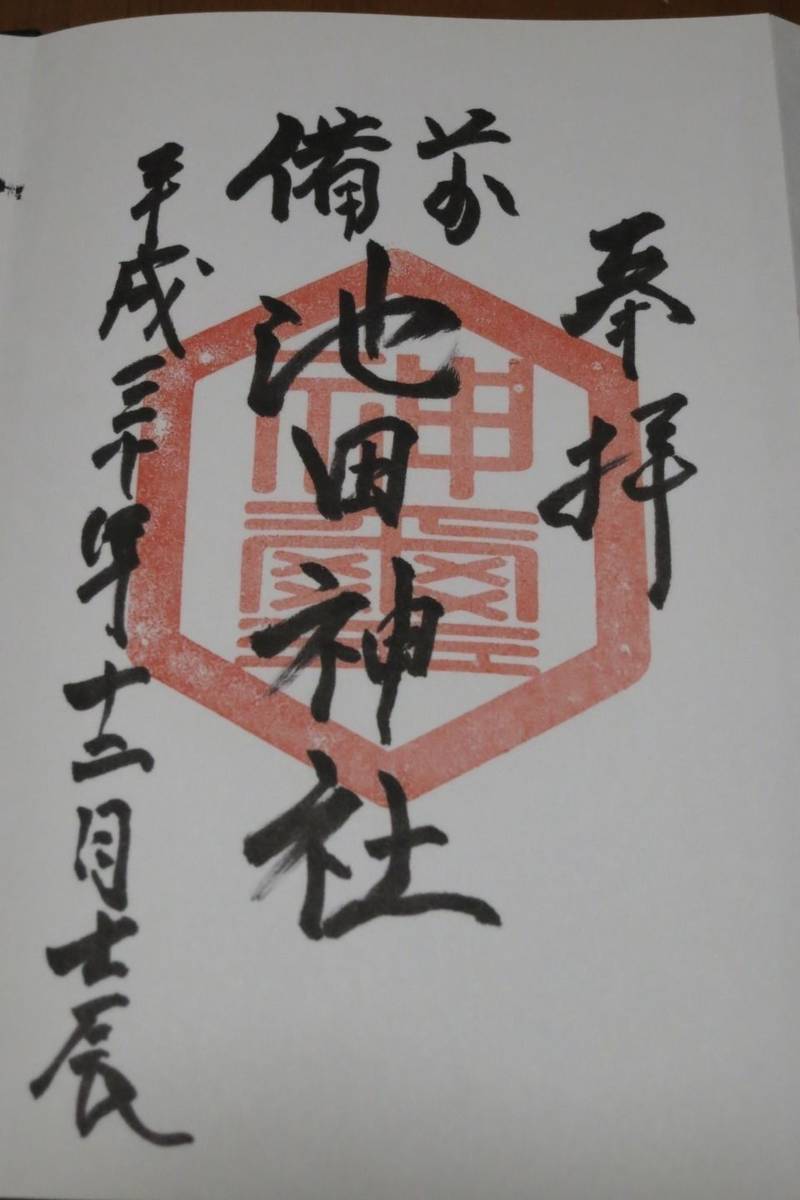 奉拝
備前
池田神社
平成三十年十二月吉辰
神璽